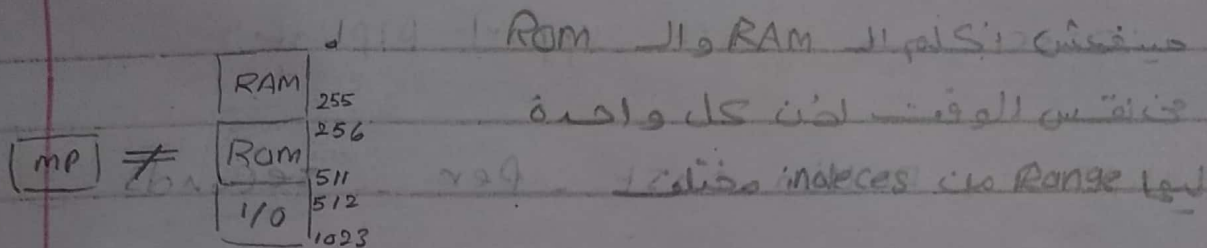 مينفعش اكلم ال RAM وال Rom
في نفس الوقت لان كل واحدة
ليها Range من indeces مختلف
RAM
255
256
MP ≠ Rom
511
512
I/O
1023